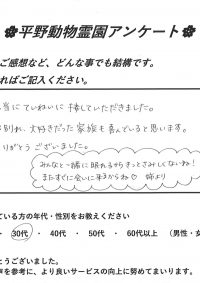 ✽平野動物霊園アンケート✽
ご感想など、どんな事でも結構です。
ればご記入ください。
当にていねいに接していただきました。
お別れ、大好きだった家族も喜んでいると思います。
りがとうございました。
みんなと一緒に眠れるからきっとさみしくないね!
またすぐに会いに来るからね♡ 姉より
ている方の年代・性別をお教えください
・ 30代 ・ 40代 ・ 50代 ・ 60代以上 (男性・女
とうございました。
声を参考に、より良いサービスの向上に努めてまいります。